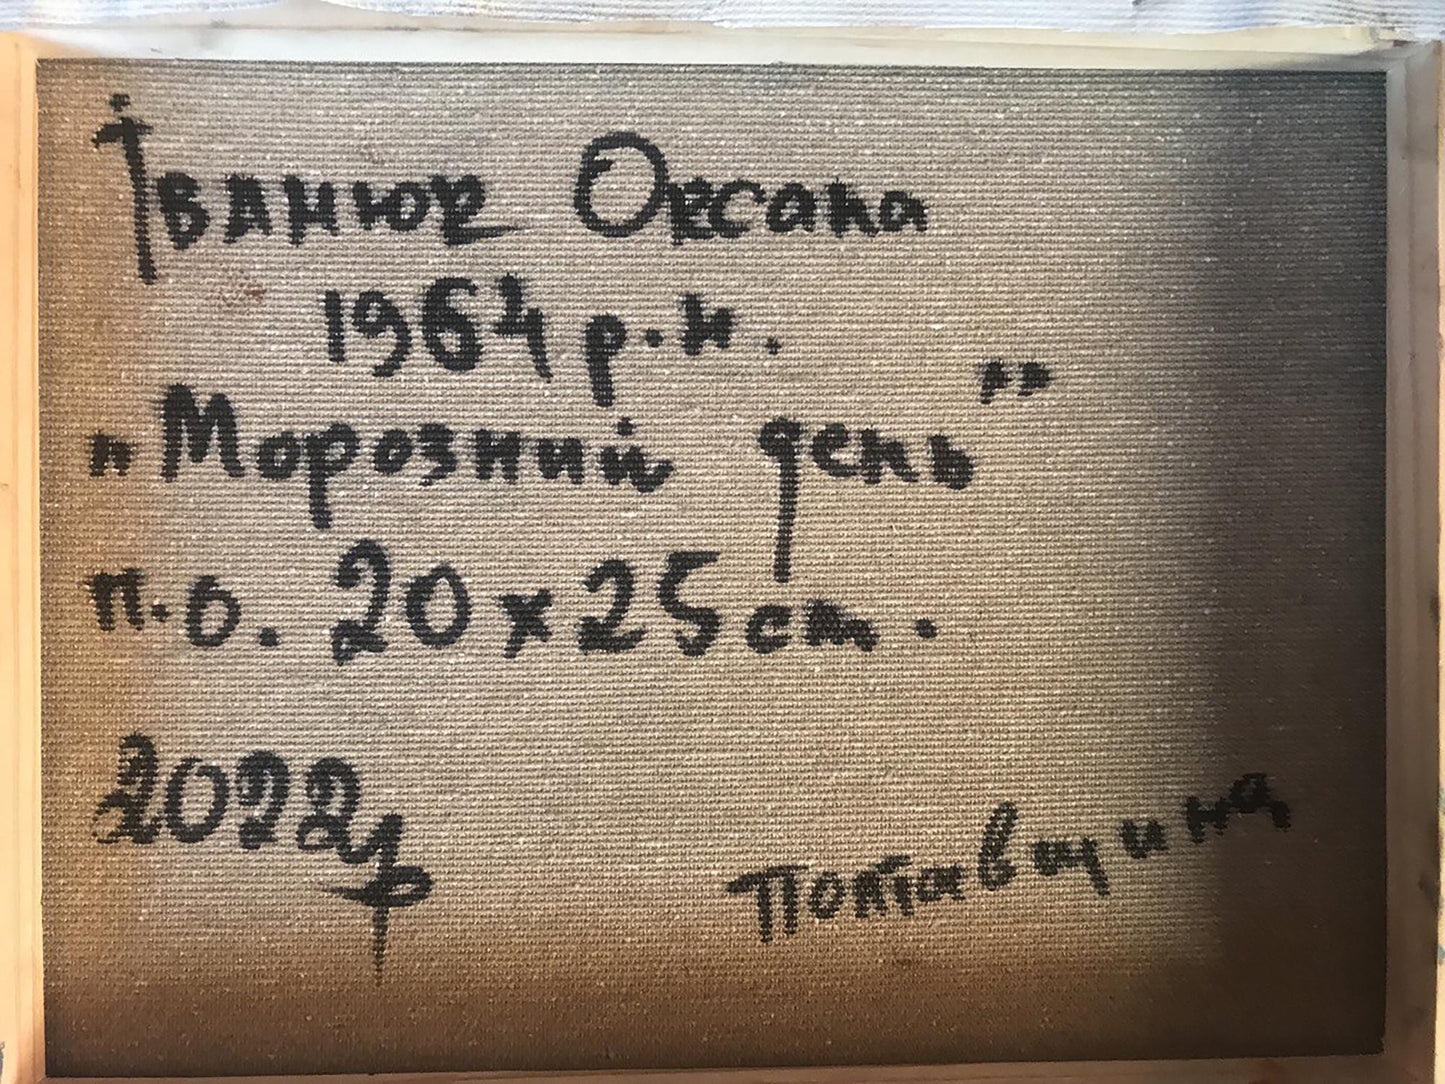 Іванюк Оксана
1964 р.н.
"Морозний день"
п.о. 20х25 ст.
2022р
Полтавщина